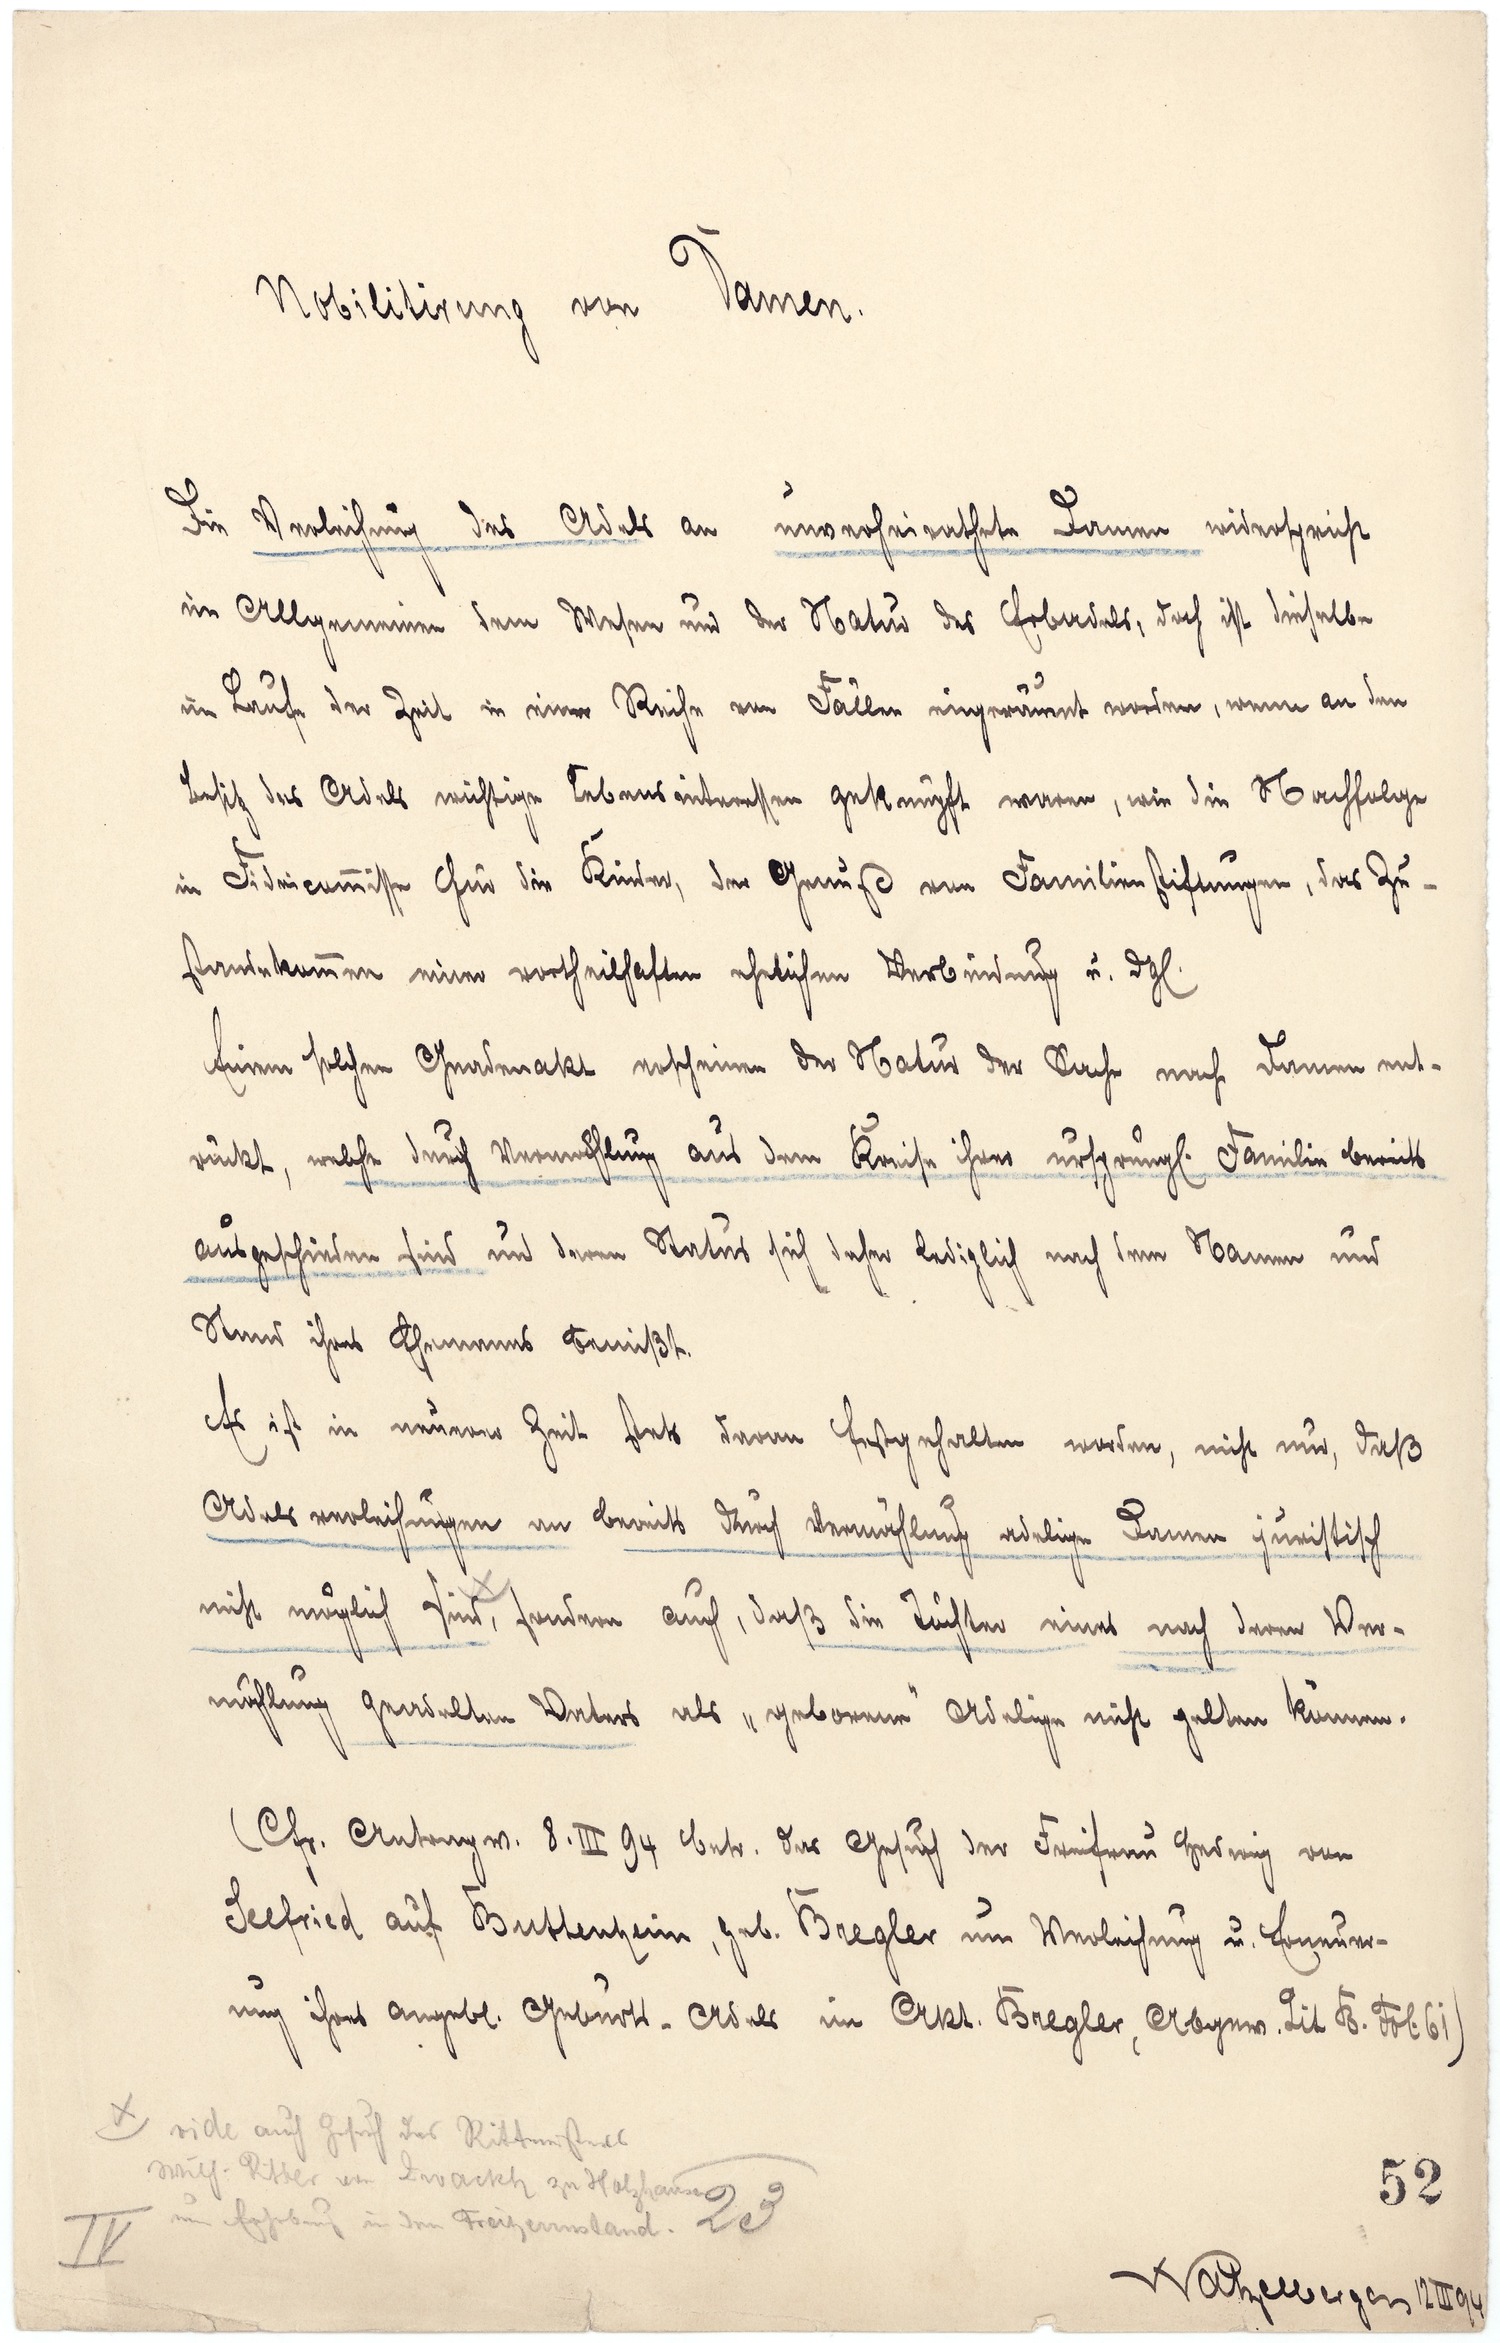 Nobilitirung von Damen.
Die Verleihung des Adels an unverheirathete Damen widerspricht
im Allgemeinen dem Wesen und der Natur des Erbadels, doch ist dieselbe
im Laufe der Zeit in einer Reihe von Fällen eingeräumt worden, wenn an den
Besitz des Adels wichtige Lebensinteressen geknüpft waren, wie die Nachfolge
in Fideicom̅isse für die Kinder, der Genuß von Familienstiftungen, das Zu-
standekom̅en einer vortheilhaften ehelichen Verbindung u. dgl.
Einem solchen Gnadenakt erscheinen der Natur der Sache nach Damen ent-
rückt, welche durch Vermählung aus dem Kreise ihrer ursprüngl. Familie bereits
ausgeschieden sind und deren Status sich daher lediglich nach dem Namen und
Stand ihres Ehemannes bemißt.
Es ist in neuerer Zeit stets daran festgehalten worden, nicht nur, daß
Adelsverleihungen an bereits durch Vermählung adelige Damen juristisch
nicht möglich sind, sondern auch, daß die Töchter eines nach deren Ver-
mählung geadelten Vaters als „geborene" Adelige nicht gelten können.
(Cfr. Antrag v. 8. III 94 betr. das Gesuch der Freifrau Hedwig von
Seefried auf Buttenheim, geb. Bregler um Verleihung u. Erneuer-
ung ihres angebl. Geburts-Adels im Akt. Bregler, Abgew. Lit B. Fol. 61)
x vide auch Gesuch des Rittmeisters
Wilh. Ritter von Zwackh zu Holzhausen
um Erhebung in den Freiherrnstand.
23
IV
52
12 III 94